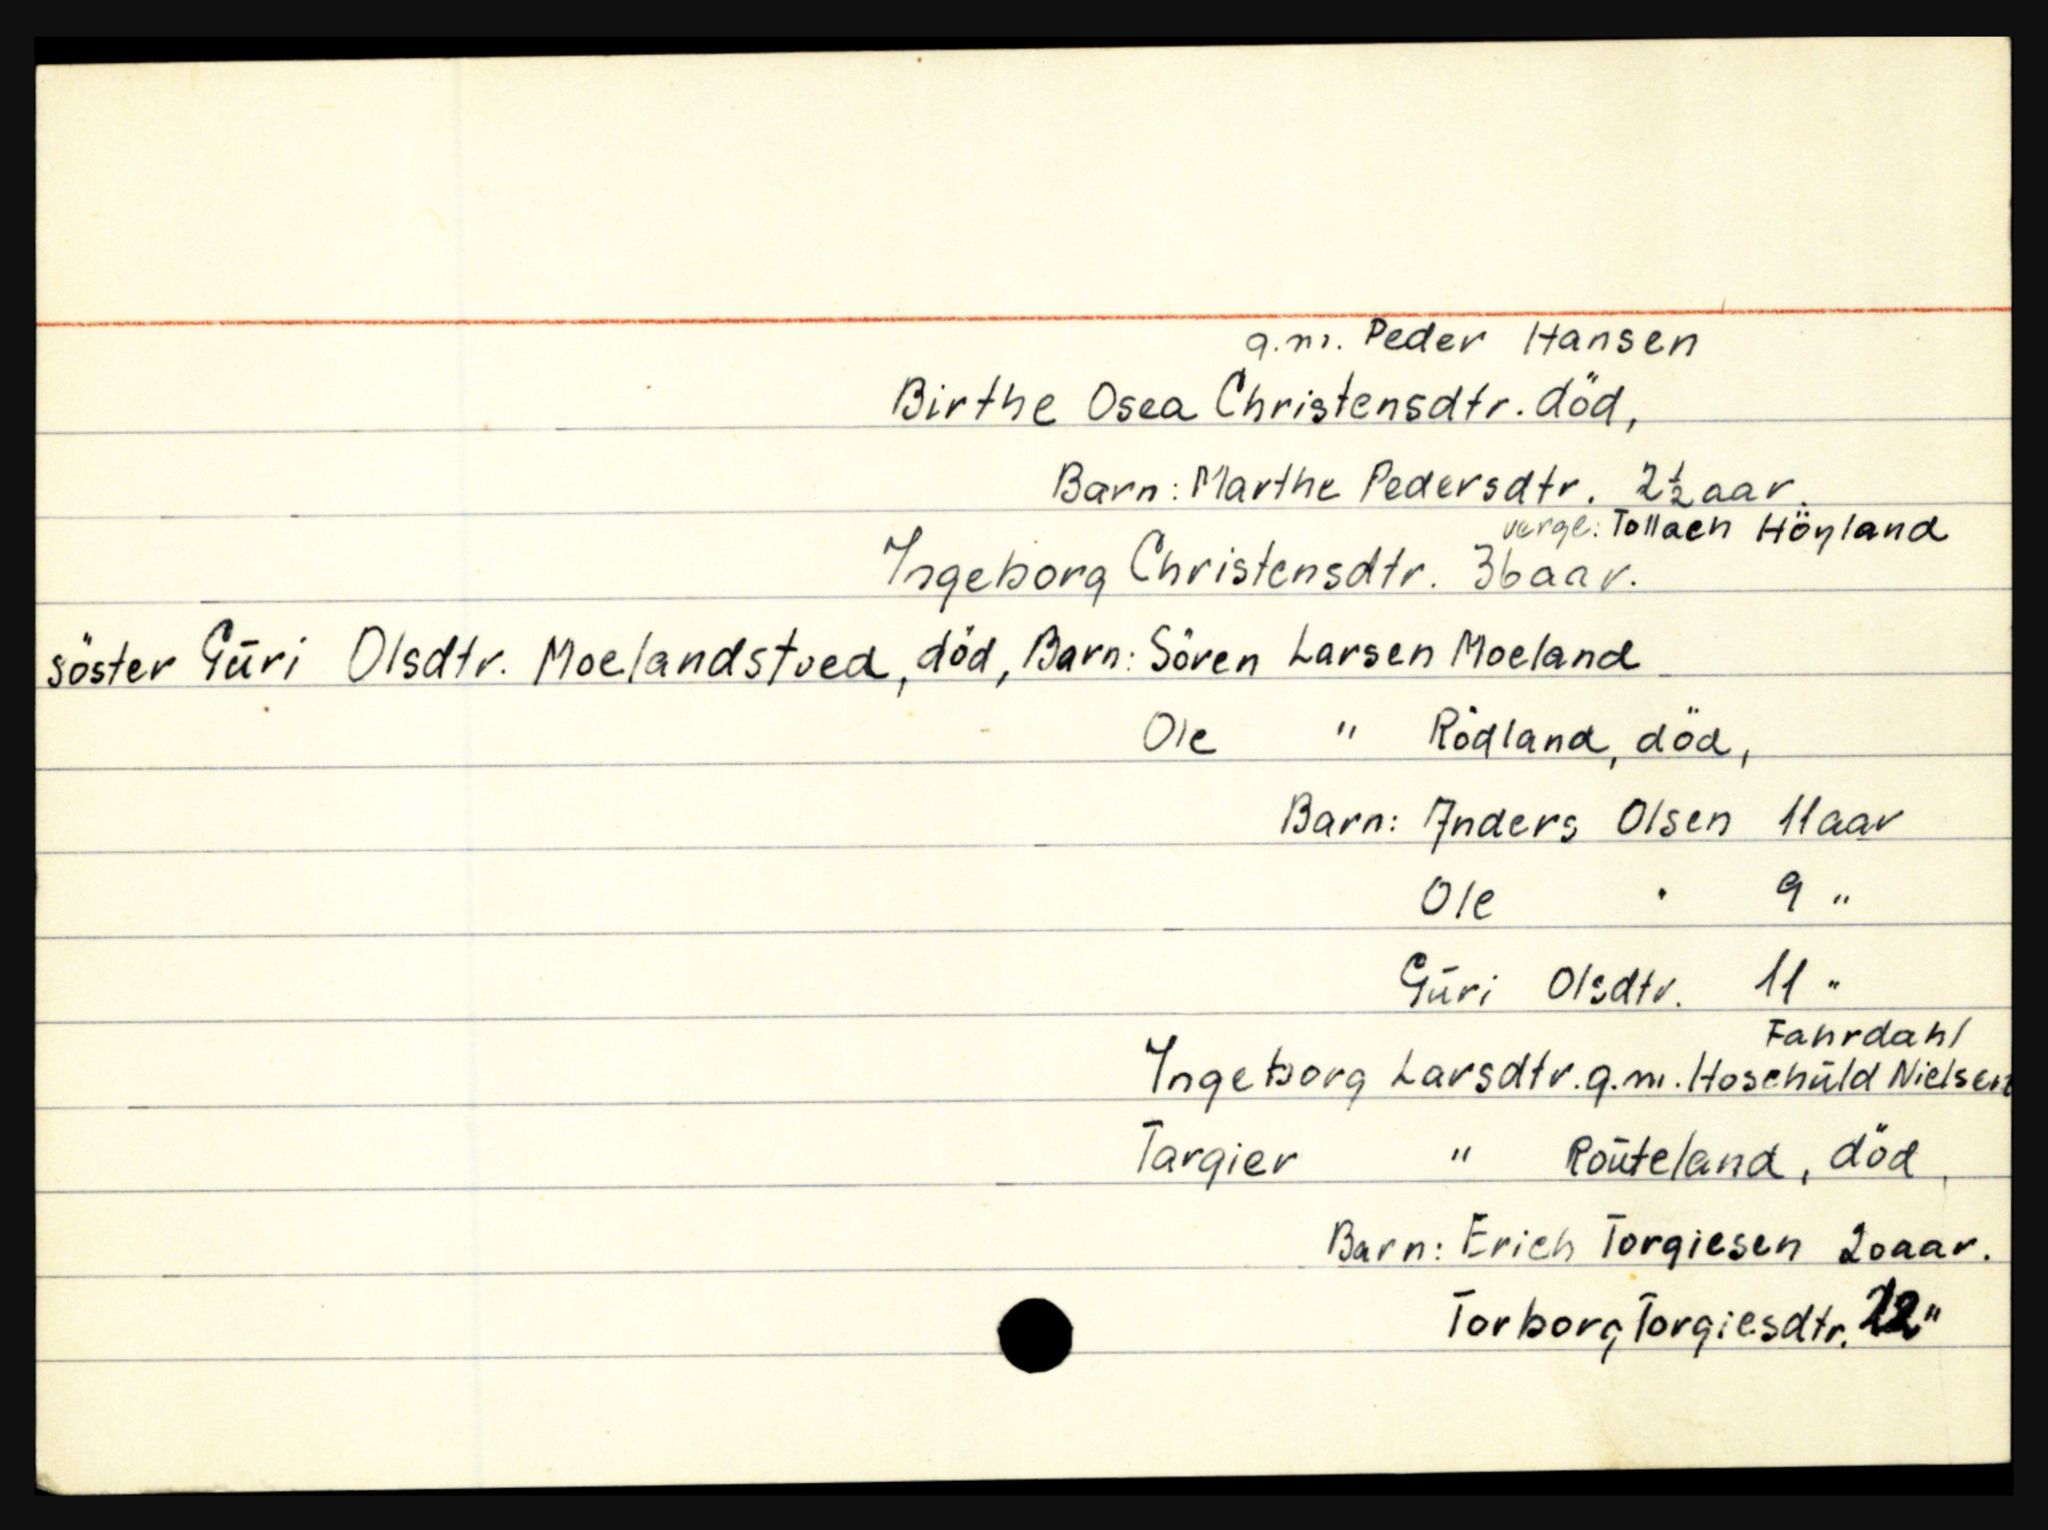 g.m. Peder Hansen
Birthe Osea Christensdtr. död,
Barn: Marthe Pedersdtr. 2½ aar.
verge: Tollach Höyland
Ingeborg Christensdtr. 36 aar.
söster Gūri Olsdtr. Moelandstved, död, Barn: Sören Larsen Moeland
Ole " Rödland, död,
Barn: Anders Olsen 11 aar
Ole " 9 "
Gūri Olsdtr. 11 "
Fahrdahl
Ingeborg Larsdtr. g.m. Hoschūld Nielsen
Targier " Roūteland, död,
Barn: Erich Torgiesen 20 aar.
Torborg Torgiesdtr. 22 "